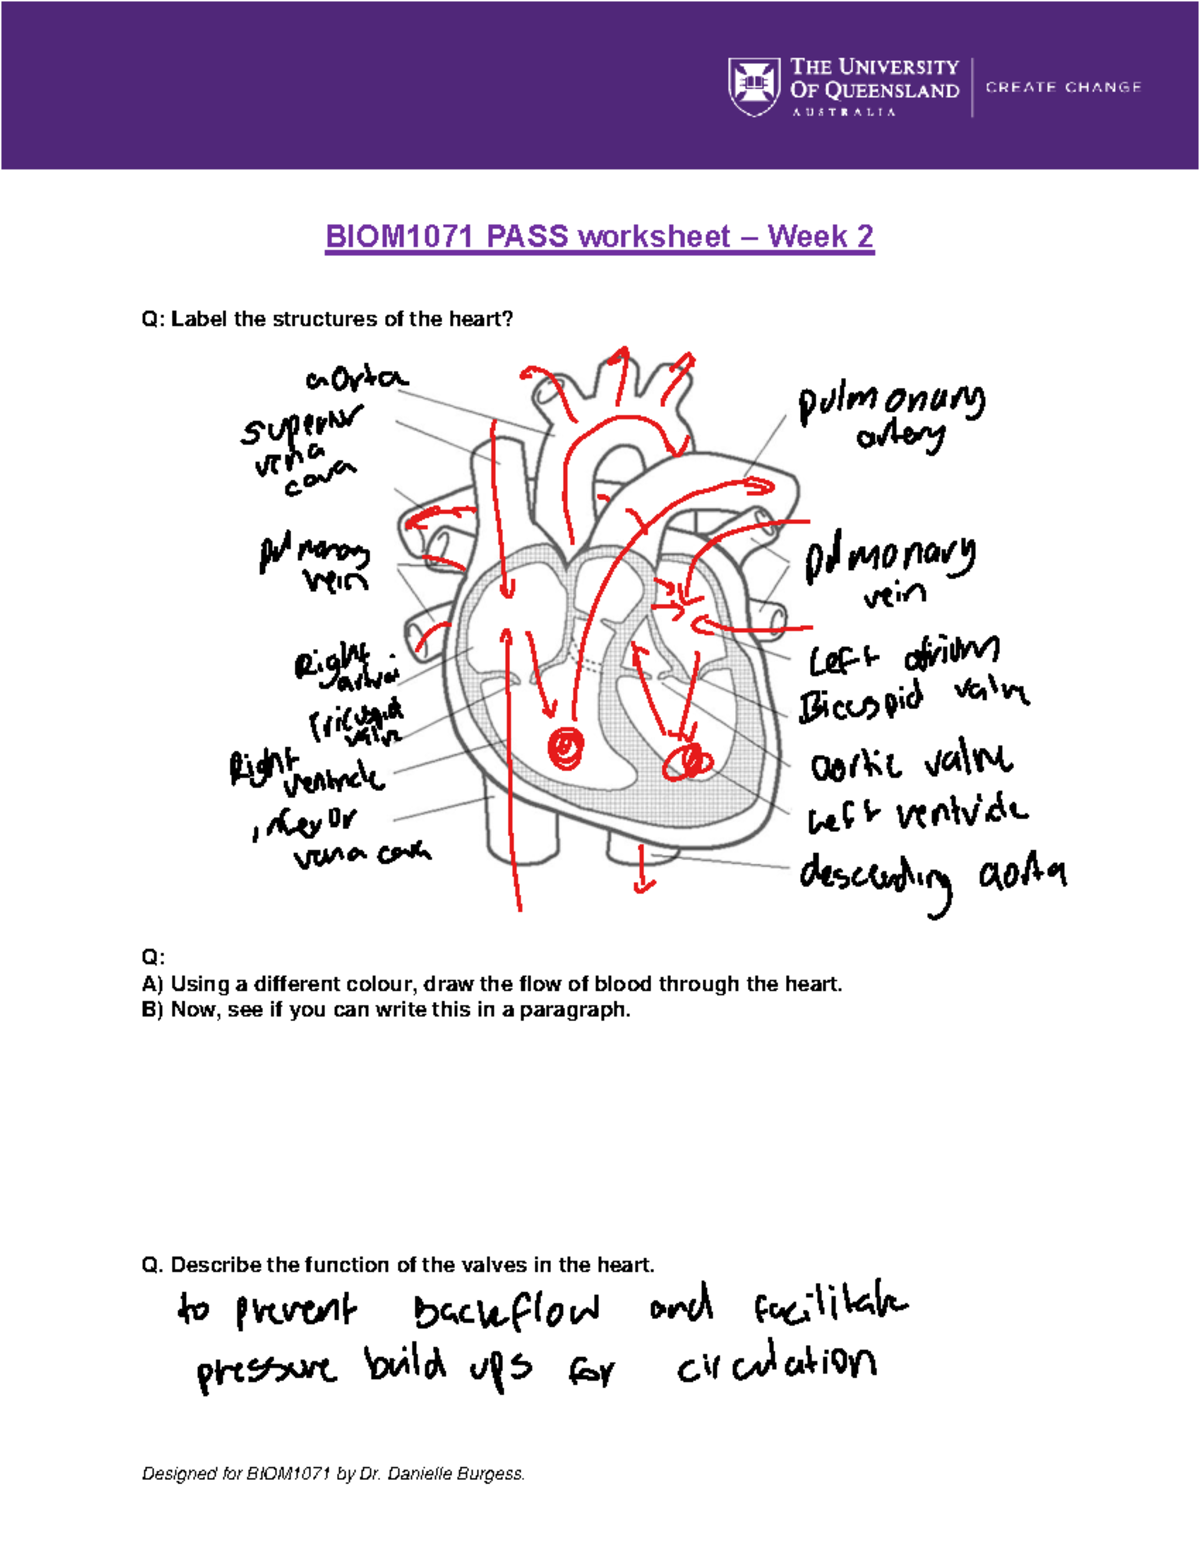 THE UNIVERSITY
OF QUEENSLAND
AUSTRALIA
CREATE CHANGE
BIOM1071 PASS worksheet – Week 2
Q: Label the structures of the heart?
aorta
superior
vena
cava
pulmonary
vein
Right
tricuspid
valv
Right
ventricle
vena cava
pulmonary
artery
pulmonary
vein
Left atrium
Bicuspid valve
aortic valve
Left ventricle
descending aorta
Q:
A) Using a different colour, draw the flow of blood through the heart.
B) Now, see if you can write this in a paragraph.
Q. Describe the function of the valves in the heart.
to prevent backflow and facilitate
pressure build ups for circulation
Designed for BIOM1071 by Dr. Danielle Burgess.